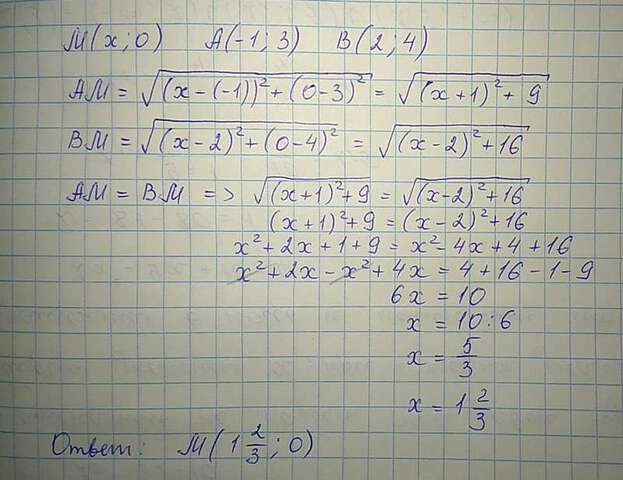 M(x; 0) A(-1; 3) B(2; 4)
AM = √((x-(-1))²+(0-3)²) = √((x+1)²+9)
BM = √((x-2)²+(0-4)²) = √((x-2)²+16)
AM = BM => √((x+1)²+9) = √((x-2)²+16)
(x+1)²+9 = (x-2)²+16
x²+2x+1+9 = x²-4x+4+16
x²+2x-x²+4x = 4+16-1-9
6x = 10
x = 10:6
x = 5/3
x = 1 2/3
Ответ: M(1 2/3; 0)